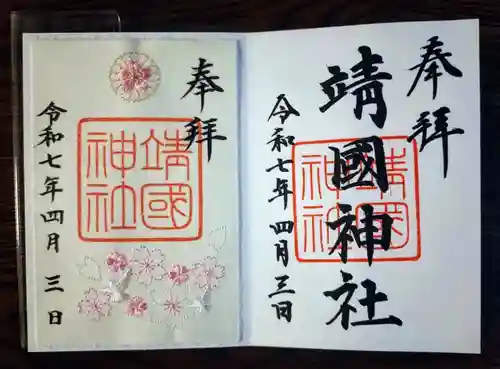 奉拝
靖國神社
靖國神社
令和七年四月三日
奉拝
靖國神社
令和七年四月三日